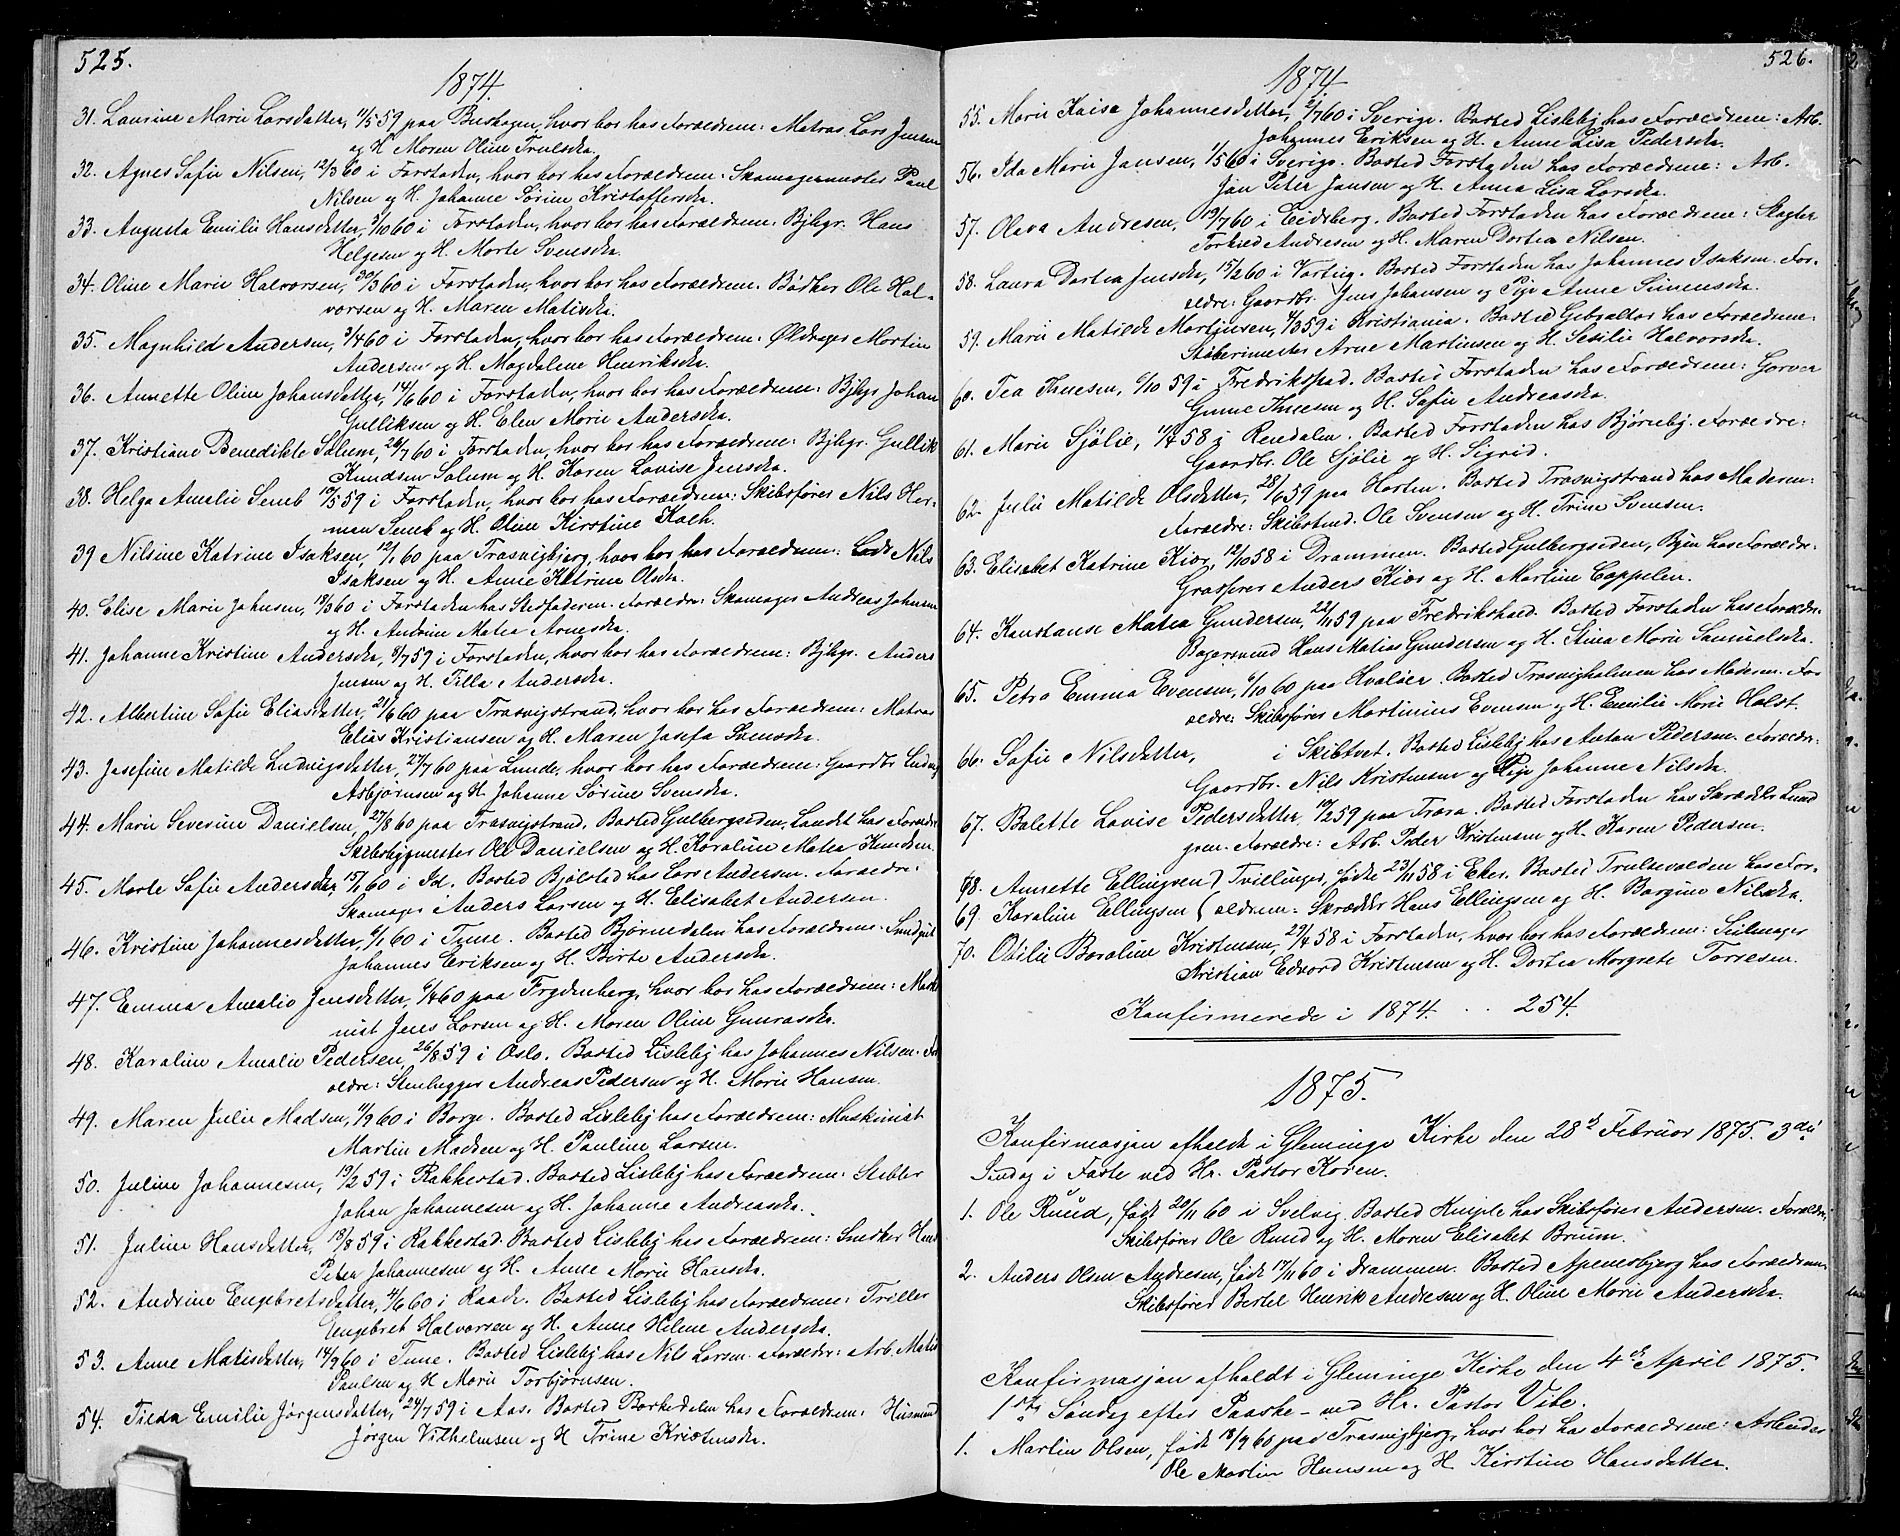 525.
1874.
31. Laurine Marie Larsdatter, 11/5 59 paa Buskogen, hvor bor hos Forældrene: Matros Lars Jensen
og H. Maren Oline Trulsda.
32. Agnes Sofie Nilsen, 12/3 60 i Forstaden, hvor bor hos Forældrene: Skomagermester Paul
Nilsen og H. Johanne Sørine Kristoffersda.
33. Augusta Emilie Hansdatter, 5/10 60 i Forstaden, hvor bor hos Forældrene: Bjbgr. Hans
Helgesen og H. Marte Svensda.
34. Oline Marie Halvorsen, 30/3 60 i Forstaden, hvor bor hos Forældrene: Bødker Ole Hal-
vorsen og H. Maren Matisda.
35. Magnhild Andersen, 3/4 60 i Forstaden, hvor bor hos Forældrene: Øldrager Martin
Andersen og H. Magdalene Henriksda.
36. Annette Oline Johansdatter, 14/6 60 i Forstaden, hvor bor hos Forældrene: Bjbgr Johan
Gulliksen og H. Elen Marie Andersda.
37. Kristiane Benedikte Solum, 26/7 60 i Forstaden, hvor bor hos Forældrene: Bjbgr. Gullik
Knudsen Solum og H. Karen Lovise Jensda.
38. Helga Amalie Semb 10/5 59 i Forstaden, hvor bor hos Forældrene: Skibsfører Nils Her-
man Semb og H. Oline Kirstine Koch.
39 Nilsine Katrine Isaksen, 12/1 60 paa Trosvigbjerg, hvor bor hos Forældrene: Lods Nils
Isaksen og H. Anne Katrine Olsda.
40. Elise Marie Johnsen, 18/3 60 i Forstaden hos Stedfaderen. Forældre: Skomager Andreas Johnsen
og H. Andrine Matea Arnesda.
41. Johanne Kristine Andersda, 8/7 59 i Forstaden, hvor bor hos Forældrene: Bjbgr. Anders
Jensen og H. Tilla Andersda.
42. Albertine Sofie Eliasdatter, 21/6 60 paa Trosvigstrand, hvor bor hos Forældrene: Matros
Elias Kristiansen og H. Maren Josefa Svensda.
43. Josefine Matilde Ludvigsdatter, 27/7 60 paa Lunde, hvor bor hos Forældrene: Gaardbr Ludvig
Asbjørnsen og H. Johanne Sørine Svensda.
44. Marie Severine Danielsen, 27/8 60 paa Trosvigstrand. Bosted Gulbergsiden, Landet hos Forældre
Skibsbygmester Ole Danielsen og H. Karoline Matea Knudsen.
45. Marte Sofie Andersda, 15/1 60 i Id. Bosted Bjølstad hos Lars Andersen. Forældre:
Skomager Anders Larsen og H. Elisabet Andersen.
46. Kristine Johannesdatter, 6/1 60 i Tune. Bosted Bjørnedalen hos Forældrene:
Johannes Eriksen og H. Birte Andersda.
47. Emma Amalie Jensdatter, 6/4 60 paa Frydenberg, hvor bor hos Forældrene: Maski
nist Jens Larsen og H. Maren Oline Gunrasda.
48. Karoline Amalie Pedersen, 26/8 59 i Oslo. Bosted Lisleby hos Johannes Nilsen. For
ældre: Stenhugger Andreas Pedersen og H. Marie Hansen.
49. Maren Julie Madsen, 11/9 60 i Borge. Bosted Lisleby hos Forældrene: Maskinist
Martin Madsen og H. Pauline Larsen.
50. Juline Johannesen, 19/2 59 i Rakkestad. Bosted Lisleby hos Forældrene: Stabler
Johan Johannesen og H. Johanne Andreasda.
51. Juline Hansdatter, 18/8 59 i Rakkestad. Bosted Lisleby hos Forældrene: Snedker Hans
Peter Johannesen og H. Anne Marie Hansda.
52. Andrine Engebretsdatter, 4/6 60 i Raade. Bosted Lisleby hos Forældrene: Triller
Engebret Halvorsen og H. Anne Helene Andersda.
53. Anne Matisdatter, 14/9 60 i Tune. Bosted Lisleby hos Nils Larsen. Forældre: Arb. Matis
Paulsen og H. Marie Torbjørnsen.
54. Tilda Emilie Jørgensdatter, 24/7 59 i Aas. Bosted Borkedalen hos Forældrene: Husmand
Jørgen Vilhelmsen og H Trine Kristensda.
526.
1874
55. Marie Kaisa Johannesdatter, 2/7 60 i Sverige. Bosted Lisleby hos Forældrene: Arb.
Johannes Eriksen og H. Anne Lisa Pedersda.
56. Ida Marie Jansen, 1/5 60 i Sverige. Bosted Forstaden hos Forældrene: Arb.
Jan Peter Jansen og H. Anna Lisa Larsda.
57. Olava Andresen, 19/7 60 i Eidsberg. Bosted Forstaden hos Forældrene: Slagter
Torkild Andresen og H. Maren Dortea Nilsen.
58. Laura Dortea Jensda, 15/2 60 i Varteig. Bosted Forstaden hos Johannes Isaksen. For-
ældre: Gaardbr. Jens Johansen og Pige Anne Simensda.
59. Marie Matilde Martinsen, 4/3 59 i Kristiania. Bosted Gibraltar hos Forældrene:
Støberimester Arne Martinsen og H. Sesilie Halvorsda.
60. Tea Thuesen, 6/10 59 i Fredrikstad. Bosted Forstaden hos Forældrene: Garver
Gunne Thuesen og H. Sofie Andreasda.
61. Marie Sjølie, 11/7 58 i Rendalen. Bosted Forstaden hos Bjørneby. Forældre:
Gaardbr. Ole Sjølie og H. Sigrid.
62. Julie Matilde Olsdatter, 28/6 59 paa Horten. Bosted Trosvigstrand hos Moderen:
Forældre: Skibstmd. Ole Svensen og H. Trine Svensen.
63. Elisabet Katrine Kiær, 12/10 58 i Drammen. Bosted Gulbergsiden, Byen hos Forældre:
Grosserer Anders Kiær og H. Martine Cappelen.
64. Konstanse Matea Gundersen, 22/1 59 paa Fredrikshald. Bosted Forstaden hos Forældre:
Bagersvend Hans Matias Gundersen og H. Stina Marie Samuelsda.
65. Petra Emma Evensen, 6/10 60 paa Hvaløer. Bosted Trosvigholmen hos Moderen. For
ældre: Skibsfører Martinius Evensen og H. Emilie Marie Holst.
66. Sofie Nilsdatter, i Skibtvet. Bosted Lisleby hos Anton Pedersen. Forældre:
Gaardbr. Nils Kristensen og Pige Johanne Nilsda.
67. Bolette Lovise Pedersdatter, 19/2 59 paa Trara. Bosted Forstaden hos Skrædder Lund
gren. Forældre: Arb. Peder Kristensen og H. Karen Pedersen.
68. Annette Ellingsen } Tvillinger, fødte 23/11 58 i Eker. Bosted Trulsevolden hos For-
69. Karoline Ellingsen { ældrene: Skrædder Hans Ellingsen og H. Bargine Nilsda.
70. Otilie Baroline Kristensen, 29/4 58 i Forstaden, hvor bor hos Forældrene: Seilmager
Kristian Edvard Kristensen og H. Dortea Margrete Torresen.
Konfirmerede i 1874. .. 254.
1875.
Konfirmasjon afholdt i Glemminge Kirke den 28de Februar 1875. 3die
Søndag i Faste ved Hr. Pastor Koren.
1. Ole Ruud, født 20/11 60 i Svelvig. Bosted Kniple hos Skibsfører Andersen. Forældre,
Skibsfører Ole Ruud og H. Maren Elisabet Bruum.
2. Anders Olsen Andresen, født 17/11 60 i Drammen. Bosted Apenesbjerg hos Forældrene
Skibsfører Bertel Henrik Andresen og H. Oline Marie Andersda.
Konfirmasjon afholdt i Glemminge Kirke den 4de April 1875.
1ste Søndag efter Paaske - ved Hr. Pastor Vibe.
1. Martin Olsen, født 18/9 60 paa Trosvigbjerg, hvor bor hos Forældrene: Arbeider
Ole Martin Hansen og H. Kirstine Hansdatter.